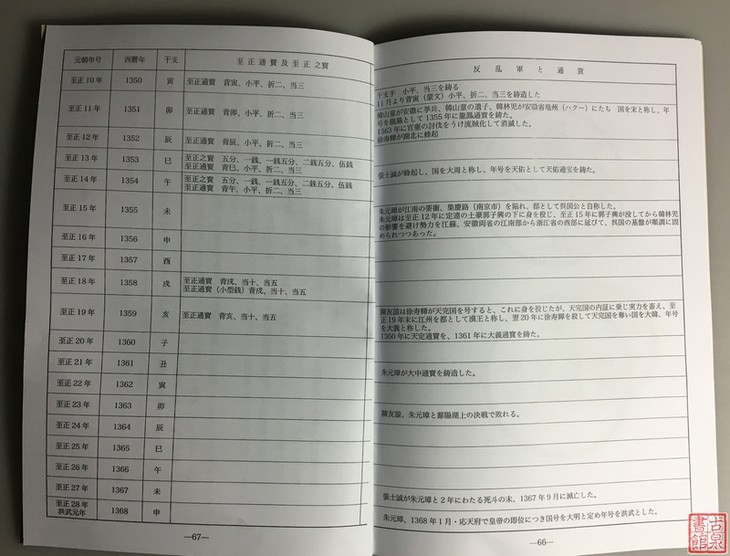 元朝年号 西暦年 干支 至正通寳及至正之寳
至正10年 1350 寅 至正通寳 背寅、小平、折二、当三
至正11年 1351 卯 至正通寳 背卯、小平、折二、当三
至正12年 1352 辰 至正通寳 背辰、小平、折二、当三
至正13年 1353 巳 至正之寳 五分、一銭、一銭五分、二銭五分、伍銭
至正通寳 背巳、小平、折二、当三
至正14年 1354 午 至正之寳 五分、一銭、一銭五分、二銭五分、伍銭
至正通寳 背午、小平、折二、当三
至正15年 1355 未
至正16年 1356 申
至正17年 1357 酉
至正18年 1358 戌 至正通寳 背戌、当十、当五
至正通寳（小型銭）背戌、当十、当五
至正19年 1359 亥 至正通寳 背亥、当十、当五
至正20年 1360 子
至正21年 1361 丑
至正22年 1362 寅
至正23年 1363 卯
至正24年 1364 辰
至正25年 1365 巳
至正26年 1366 午
至正27年 1367 未
至正28年
洪武元年 1368 申
―67―
反乱軍と通貨
干支手 小平、当三を鋳る
11月より背寅（蒙文）小平、折二、当三を鋳造した
韓山童が安徽に挙兵、韓山童の遺子、韓林児が安徽省亳州（ハクー）にたち 国を宋と称し、年
号を龍鳳として1355年に龍鳳通寳を鋳た。
1363年に官軍の討伐をうけ流賊化して消滅した。
徐寿輝が湖北に蜂起
張士誠が蜂起し、国を大周と称し、年号を天佑として天佑通宝を鋳た。
朱元璋が江南の要衝、集慶路（南京市）を陥れ、都として呉国公と自称した。
朱元璋は至正12年に定遠の土豪郭子興の下に身を投じ、至正15年に郭子興が没してから韓林児
の影響を避け勢力を江蘇、安徽両省の江南部から浙江省の西部に延びて、呉国の基盤が順調に固
められつつあった。
陳友諒は徐寿輝が天完国を号すると、これに身を投じたが、天完国の内証に乗じ実力を蓄え、至
正19年末に江州を都として漢王と称し、翌20年に徐寿輝を殺して天完国を奪い国を大韓、年号
を大義と称した。
1360年に天定通寳を、1361年に大義通寳を鋳た。
朱元璋が大中通寳を鋳造した。
陳友諒、朱元璋と鄱陽湖上の決戦で敗れる。
張士誠が朱元璋と2年にわたる死斗の末、1367年9月に滅亡した。
朱元璋、1368年1月・応天府で皇帝の即位につき国号を大明と定め年号を洪武とした。
―66―
古泉
書館